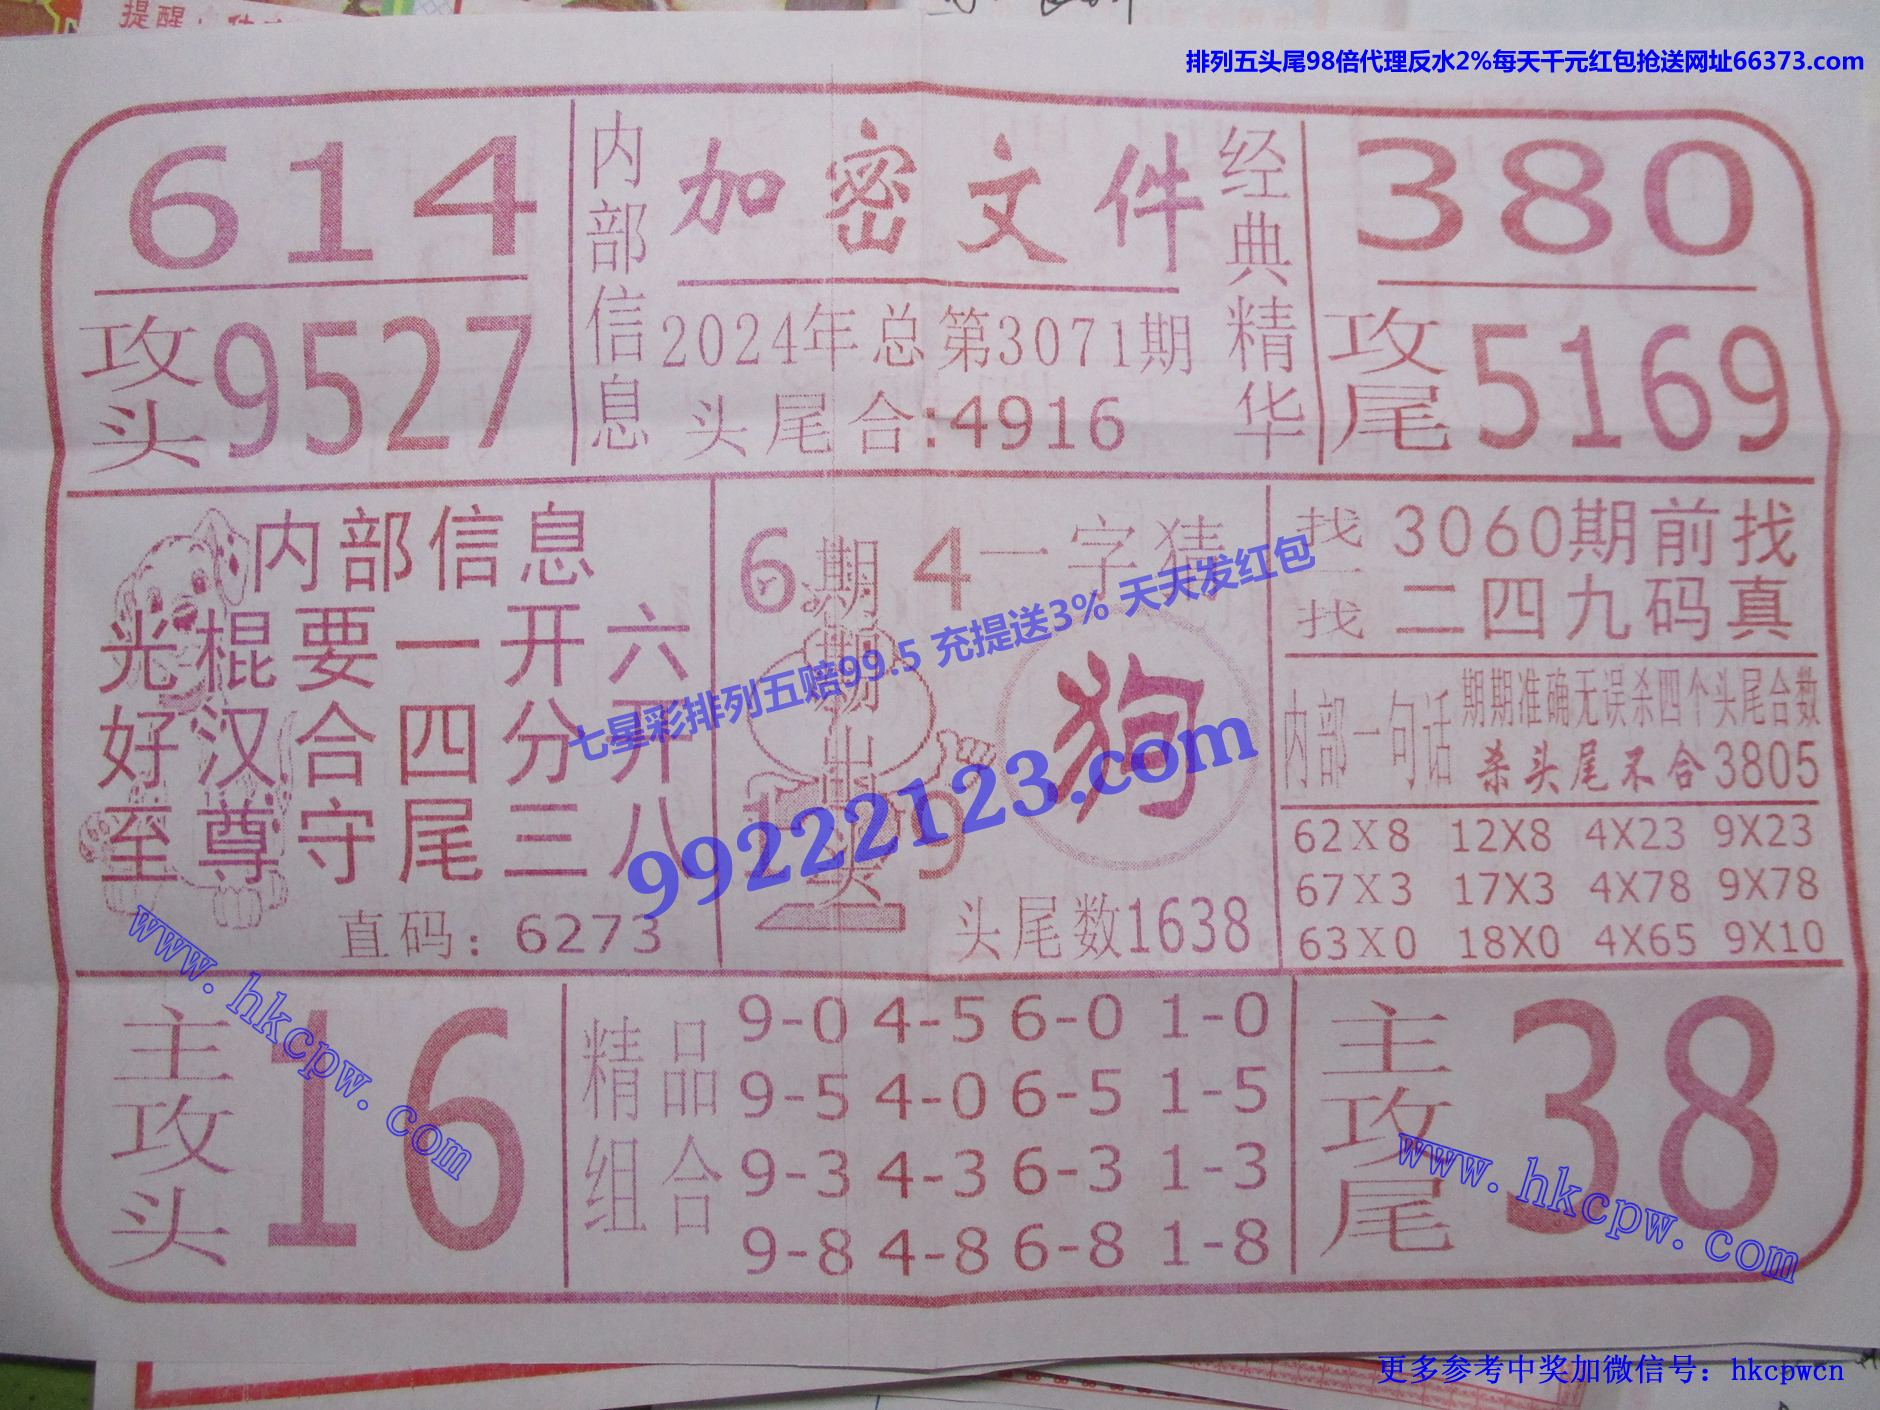 提醒
排列五头尾98倍代理反水2%每天千元红包抢送网址66373.com
614
攻头 9527
内部信息
加密文件
2024年总第3071期
头尾合:4916
经典精华
380
攻尾 5169
内部信息
光棍要一开六
好汉合四分开
至尊守尾三八
直码：6273
6 4
1 9
期期出头
一字猜
狗
头尾数1638
找一找
3060期前找
二四九码真
内部一句话
期期准确无误杀四个头尾合数
杀头尾不合3805
62X8 12X8 4X23 9X23
67X3 17X3 4X78 9X78
63X0 18X0 4X65 9X10
七星彩排列五赔99.5 充提送3% 天天发红包
99222123.com
www.hkcpw.com
主攻头 16
精品组合
9-0 4-5 6-0 1-0
9-5 4-0 6-5 1-5
9-3 4-3 6-3 1-3
9-8 4-8 6-8 1-8
主攻尾 38
www.hkcpw.com
更多参考中奖加微信号：hkcpwcn